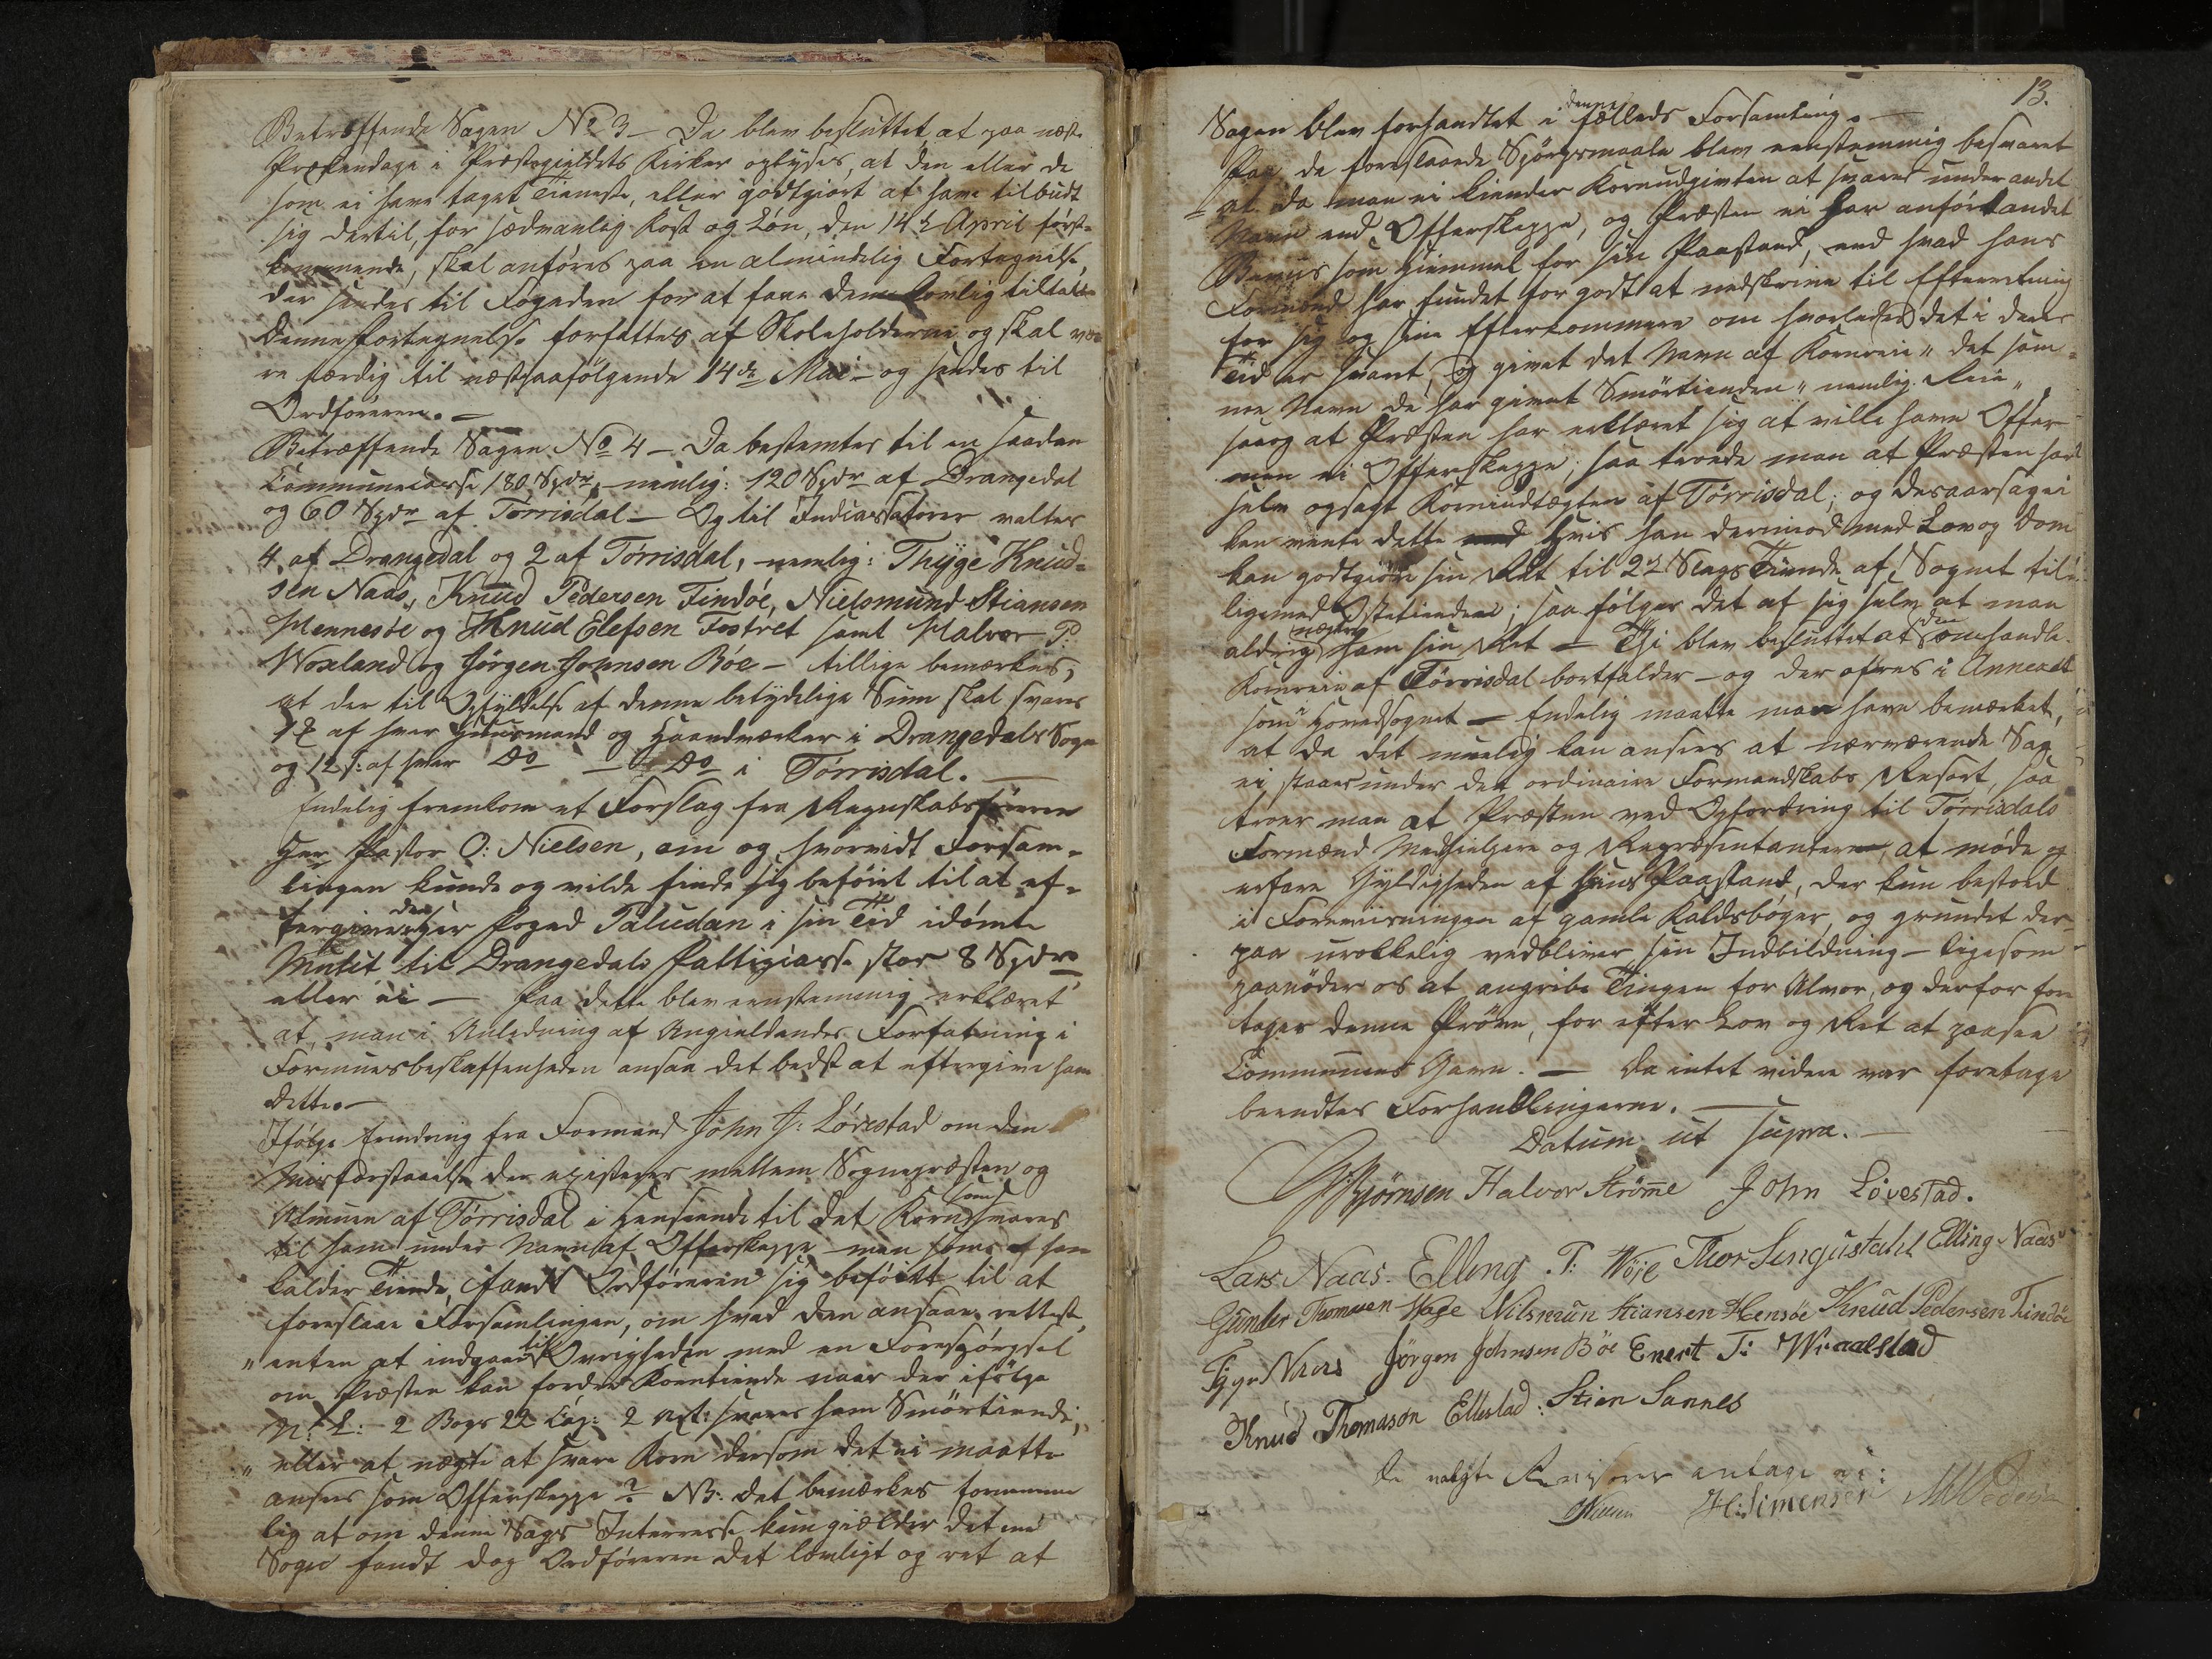 Betræffende Sagen No 3 – Da blev besluttet at paa næste
Prækendage i Præstegieldets Kirker oplyses, at den eller de
som ei have taget Tieneste, eller godtgiort at have tilbudt
sig dertil, for sædvanlig Kost og Løn, den 14de April først-
kommende, skal anføres paa en almindelig Fortegnelse,
der sendes til Fogeden for at faae dem lovlig tiltalt
Denne Fortegnelse forfattes af Skoleholderne og skal væ-
re færdig til næstpaafølgende 14de Mai – og sendes til
Ordføreren. –
Betræffende Sagen No 4 – Da bestemtes til en saadan
Communecasse 180 Spdr, nemlig: 120 Spdr af Drangedal
og 60 Spdr af Tørrisdal – Og til Indcassatører valtes
4 af Drangedal og 2 af Tørrisdal, nemlig: Thyge Knud-
sen Naas, Knud Pedersen Tindøe, Nielsmund Stiansen
Hennesøe og Knud Elefsen Tostvet samt Halvor P.
Woxland og Jørgen Johnsen Bøe – tillige bemærkes,
at der til Opfyldelse af denne betydelige Sum skal svares
af hver Huusmand og Haandværker i Drangedals Sogn
og 12 s: af hver Do – Do i Tørrisdal. –
Endelig fremkom et Forslag fra Regnskabsføreren
Herr Pastor O: Nielsen, om og hvorvidt Forsam-
lingen kunde og vilde finde sig beføiet til at ef-
tergive den Herr Foged Paludan i sin Tid idømte
Mulct til Drangedals Fattigcasse stor 8 Spdr
eller ei – Paa dette blev eenstemmig erklæret
at man i Anledning af Angieldendes Forfatning i
Formuesbeskaffenheden ansaa det bedst at eftergive ham
dette. –
Ifølge Erindring fra Formand John J: Løvestad om den
Misforstaaelse der existerer mellem Sognepræsten og
Almuen af Tørrisdal i Henseende til det Korn som svares
til ham under Navn af Offerskeppe – men som han
kalder Tiende, fandt Ordføreren sig beføiet til at
foreslaae Forsamlingen, om hvad den ansaae rettest,
"enten at indgaae til Øvrigheden med en Forespørgsel
om Præsten kan fordre Korntiende naar der ifølge
N: L: – 2 Bogs 22 Cap: 2 Art: svares ham Smørtiende;
"eller at nægte at svare Korn dersom det ei maatte
ansees som Offerskeppe? NB: det bemærkes fornemme-
lig at om denne Sags Interesse kun gielder det ene
Sogn fandt dog Ordføreren det lovligt og ret at
13.
Sagen blev forhandlet i denne fælleds Forsamling. –
Paa de foreslaaede Spørgsmaale blev eenstemmig besvaret
at da man ei kiender Kornudgivten at svares under andet
Navn end Offerskeppe, og Præsten ei har anført andet
Beviis som Hiemmel for sin Paastand, end hvad hans
Formænd har fundet for godt at nedskrive til Efterretning
for sig og sine Efterkommere om hvorledes det i deres
Tid er svaret, og givet det Navn af Kornreie" det sam-
me Navn de har givet Smørtienden" nemlig Reie"
saag at Præsten har erklæret sig at ville have Offer
men ei Offerskeppe; saa troede man at Præsten har
selv opsagt Kornindtægten af Tørrisdal; og desaarsag ei
kan vente dette Hvis han derimod med Lov og Dom
kan godtgiøre sin Ret til 2de Slags Tiende af Sognet til-
ligemed Ostetienden; saa følger det af sig selv at man
aldrig nægter ham sin Ret – Thi blev besluttet at den omhandlede
Kornreie af Tørrisdal bortfalder – og der ofres i Annexet
som i Hovedsognet – Endelig maatte man have bemærket,
at da det muelig kan ansees at nærværende Sag
ei staaer under den ordinaire Formandskabs Resort, saa
troer man at Præsten ved Opfordring til Tørrisdals
Formænd Medhielpere og Repræsentantere, at møde og
erfare Gyldigheden af hans Paastand, der kun bestoed
i Foreviisningen af gamle Kaldsbøger, og grundet der-
paa urokkelig vedbliver sin Indbildning – ligesom
paanøder os at angribe Tingen for Alvor, og derfor fore-
tages denne Prøve, for efter Lov og Ret at paasee
Communens Gavn. – Da intet videre var foretage
beendtes Forhandlingerne. –
Datum ut supra. –
Bjørnsen Halvor Strømme John Løvestad.
Lars Naas. Elling T: Woje Thor Lengustahl Elling Naas
Gunder Thomesen Wage Nilsmun Stiansen Hensøe Knud Pedersen Tindøe
Tyge Naas Jörgen Johnsen Böe Enert T: Wraalstad
Knud Thomason Ellestad: Stian Sannes
De valgte Revisorer antage vi:
Nielsen H: Simensen M Pedersen